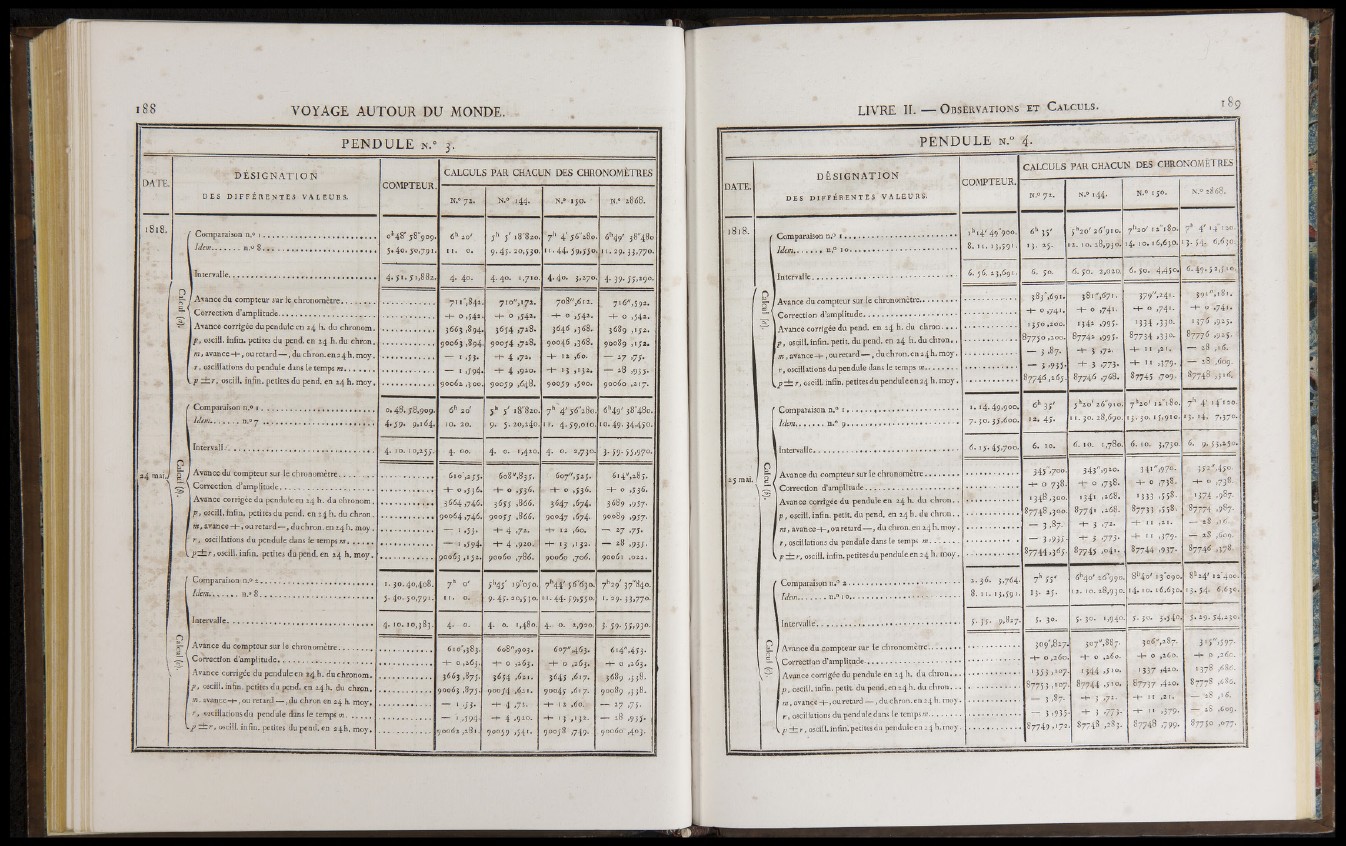 188
VOYAGE AUTOUR DU MONDE.
PENDULE N.º 3.
DATE.
DÉSIGNATION
DES DIFFÉRENTES VALEURS.
COMPTEUR.
CALCULS PAR CHACUN DES CHRONOMÈTRES
N.º 72. N.º 144. N.º 150. N.º 2868.
1818.
24 mai.
Comparaison n.º 1 0ʰ48′ 58″909. 6ʰ 20′ 5ʰ 5′ 18″820. 7ʰ 4′ 56″280. 6ʰ49′ 38″480
Idem n.º 8 5. 40. 50,791. 11. 0. 9. 45. 20,530. 11. 44. 59,550. 11. 29. 33,770.
Intervalle 4. 51. 51,882. 4. 40. 4. 40. 1,710. 4. 40. 3,270. 4. 39. 55,290.
Calcul (a).
Avance du compteur sur le chronomètre 711″,842. 710″,172. 708″,612. 716″,592.
Correction d'amplitude + 0 ,542. + 0 ,542. + 0 ,542. + 0 ,542.
Avance corrigée du pendule en 24 h. du chronom. 3663 ,894. 3654 ,728. 3646 ,368. 3689 ,152.
p, oscill. infin. petites du pend. en 24 h. du chron. 90063 ,894. 90054 ,728. 90046 ,368. 90089 ,152.
m, avance +, ou retard —, du chron. en 24 h. moy. — 1 ,53. + 4 ,72. + 12 ,60. — 27 ,75.
r, oscillations du pendule dans le temps m — 1 ,594. + 4 ,920. + 13 ,132. — 28 ,935.
p ± r, oscill. infin. petites du pend. en 24 h. moy. 90062 ,300. 90059 ,648. 90059 ,500. 90060 ,217.
Comparaison n.º 1 0. 48. 58,909. 6ʰ 20′ 5ʰ 5′ 18″820. 7ʰ 4′ 56″280. 6ʰ49′ 38″480.
Idem n.º 7 4. 59. 9,164. 10. 20. 9. 5. 20,240. 11. 4. 59,010. 10. 49. 34,450.
Intervalle 4. 10. 10,255. 4. 00. 4. 0. 1,420. 4. 0. 2,730. 3. 59. 55,970.
Calcul (a).
Avance du compteur sur le chronomètre 610″,255. 608″,835. 607″,525. 614″,285.
Correction d'amplitude + 0 ,536. + 0 ,536. + 0 ,536. + 0 ,536.
Avance corrigée du pendule en 24 h. du chronom. 3664 ,746. 3655 ,866. 3647 ,674. 3689 ,957.
p, oscill. infin. petites du pend. en 24 h. du chron. 90064 ,746. 90055 ,866. 90047 ,674. 90089 ,957.
m, avance +, ou retard —, du chron. en 24 h. moy. — 1 ,53. + 4 ,72. + 12 ,60. — 27 ,75.
r, oscillations du pendule dans le temps m — 1 ,594. + 4 ,920. + 13 ,132. — 28 ,935.
p ± r, oscill. infin. petites du pend. en 24 h. moy. 90063 ,152. 90060 ,786. 90060 ,706. 90061 ,022.
Comparaison n.º 2 1. 30. 40,408. 7ʰ 0′ 5ʰ45′ 19″050. 7ʰ44′ 56″630. 7ʰ29′ 37″840.
Idem n.º 8 5. 40. 50,791. 11. 0. 9. 45. 20,530. 11. 44. 59,550. 1. 29. 33,770.
Intervalle 4. 10. 10,383. 4. 0. 4. 0. 1,480. 4. 0. 2,920. 3. 59. 55,930.
Calcul (a).
Avance du compteur sur le chronomètre 610″,383. 608″,903. 607″,463. 614″,453.
Correction d'amplitude + 0 ,263. + 0 ,263. + 0 ,263. + 0 ,263.
Avance corrigée du pendule en 24 h. du chronom. 3663 ,875. 3654 ,621. 3645 ,617. 3689 ,338.
p, oscill. infin. petites du pend. en 24 h. du chron. 90063 ,875. 90054 ,621. 90045 ,617. 90089 ,338.
m, avance +, ou retard —, du chron. en 24 h. moy. — 1 ,53. + 4 ,72. + 12 ,60. — 27 ,75.
r, oscillations du pendule dans le temps m — 1 ,594. + 4 ,920. + 13 ,132. — 28 ,935.
p ± r, oscill. infin. petites du pend. en 24 h. moy. 90062 ,281. 90059 ,541. 90058 ,749. 90060 ,403.
LIVRE II. — OBSERVATIONS ET CALCULS.
189
PENDULE N.º 4.
DATE.
DÉSIGNATION
DES DIFFÉRENTES VALEURS.
COMPTEUR.
CALCULS PAR CHACUN DES CHRONOMÈTRES
N.º 72. N.º 144. N.º 150. N.º 2868.
1818.
25 mai.
Comparaison n.º 1 1ʰ14′ 49″900. 6ʰ 35′ 5ʰ20′ 26″910. 7ʰ20′ 12″180. 7ʰ 4′ 14″120.
Idem n.º 10 8. 11. 13,591. 13. 25. 12. 10. 28,930. 14. 10. 16,630. 13. 54. 6,630.
Intervalle 6. 56. 23,691. 6. 50. 6. 50. 2,020. 6. 50. 4,450. 6. 49. 52,510.
Calcul (b).
Avance du compteur sur le chronomètre 383″,691. 381″,671. 379″,241. 391″,181.
Correction d'amplitude + 0 ,741. + 0 ,741. + 0 ,741. + 0 ,741.
Avance corrigée du pend. en 24 h. du chron. 1350 ,200. 1342 ,995. 1334 ,330. 1376 ,925.
p, oscill. infin. petit. du pend. en 24 h. du chron. 87750 ,200. 87742 ,995. 87734 ,330. 87776 ,925.
m, avance +, ou retard —, du chron. en 24 h. moy. — 3 ,87. + 3 ,72. + 11 ,21. — 28 ,16.
r, oscillations du pendule dans le temps m — 3 ,935. + 3 ,773. + 11 ,379. — 28 ,609.
p ± r, oscill. infin. petites du pendule en 24 h. moy. 87746 ,265. 87746 ,768. 87745 ,709. 87748 ,316.
Comparaison n.º 1 1. 14. 49,900. 6ʰ 35′ 5ʰ20′ 26″910. 7ʰ20′ 12″180. 7ʰ 4′ 14″120.
Idem n.º 9 7. 30. 35,600. 12. 45. 11. 30. 28,690. 13. 30. 15,910. 13. 14. 7,370.
Intervalle 6. 15. 45,700. 6. 10. 6. 10. 1,780. 6. 10. 3,730. 6. 9. 53,250.
Calcul (b).
Avance du compteur sur le chronomètre 345″,700. 343″,920. 341″,970. 352″,450
Correction d'amplitude + 0 ,738. + 0 ,738. + 0 ,738. + 0 ,738.
Avance corrigée du pendule en 24 h. du chron. 1348 ,300. 1341 ,268. 1333 ,558. 1374 ,987.
p, oscill. infin. petit. du pend. en 24 h. du chron. 87748 ,300. 87741 ,268. 87733 ,558. 87774 ,987.
m, avance +, ou retard —, du chron. en 24 h. moy. — 3 ,87. + 3 ,72. + 11 ,21. — 28 ,16.
r, oscillations du pendule dans le temps m — 3 ,935 + 3 ,773. + 11 ,379. — 28 ,609.
p ± r, oscill. infin. petites du pendule en 24 h. moy. 87744 ,365. 87745 ,041. 87744 ,937. 87746 ,378.
Comparaison n.º 2 2. 36. 3,764. 7ʰ 55′ 6ʰ40′ 26″990. 8ʰ40′ 13″090. 8ʰ24′ 12″400.
Idem n.º 10 8. 11. 13,591. 13. 25. 12. 10. 28,930. 14. 10. 16,630. 13. 54. 6,630.
Intervalle 5. 35. 9,827. 5. 30. 5. 30. 1,940. 5. 30. 3,540. 5. 29. 54,230.
Calcul (b).
Avance du compteur sur le chronomètre 309″,827. 307″,887. 306″,287. 315″,597.
Correction d'amplitude + 0 ,260. + 0 ,260. + 0 ,260. + 0 ,260.
Avance corrigée du pendule en 24 h. du chron. 1353 ,107. 1344 ,510. 1337 ,420. 1378 ,686.
p, oscill. infin. petit. du pend. en 24 h. du chron. 87753 ,107. 87744 ,510. 87737 ,420. 87778 ,686.
m, avance +, ou retard —, du chron. en 24 h. moy. — 3 ,87. + 3 ,72. + 11 ,21. — 28 ,16.
r, oscillations du pendule dans le temps m — 3 ,935 + 3 ,773. + 11 ,379. — 28 ,609.
p ± r, oscill. infin. petites du pendule en 24 h. moy. 87749 ,172. 87748 ,283. 87748 ,799. 87750 ,077.